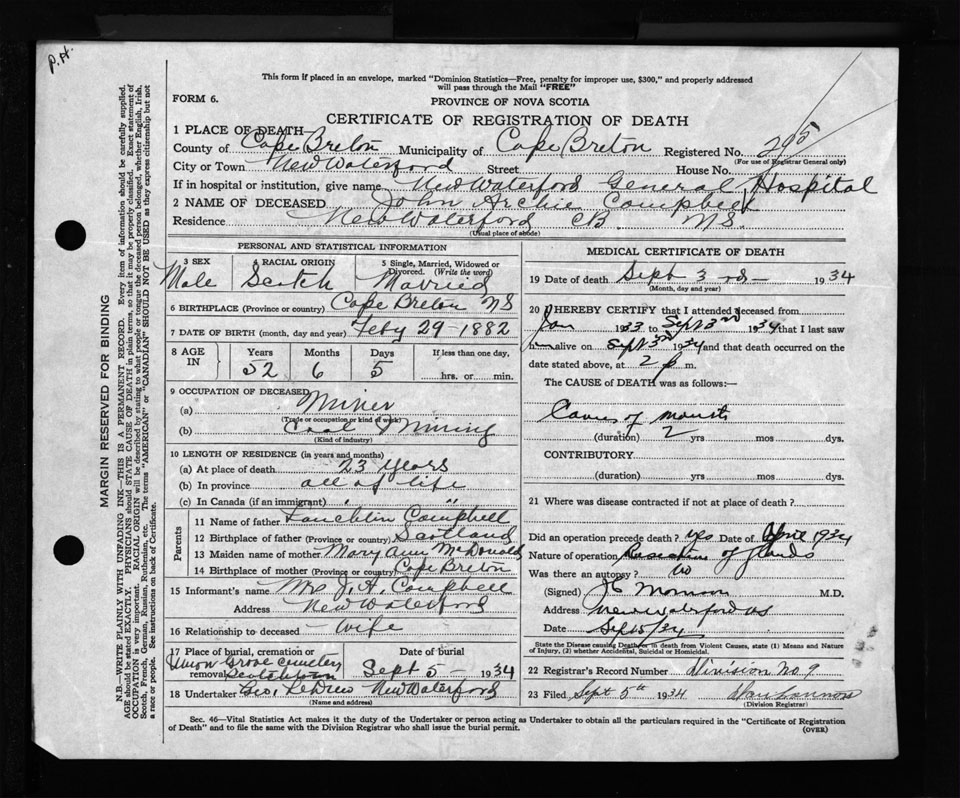 P.H.
This form if placed in an envelope, marked "Dominion Statistics—Free, penalty for improper use, $300," and properly addressed
will pass through the Mail "FREE"
FORM 6.
PROVINCE OF NOVA SCOTIA
CERTIFICATE OF REGISTRATION OF DEATH
1 PLACE OF DEATH—
County of Cape Breton Municipality of Cape Breton Registered No. 295
(For use of Registrar General only)
City or Town New Waterford Street House No.
If in hospital or institution, give name New Waterford General Hospital
2 NAME OF DECEASED John Archie Campbell
Residence New Waterford CB. NS.
(Usual place of abode)
PERSONAL AND STATISTICAL INFORMATION
3 SEX Male
4 RACIAL ORIGIN Scotch
5 Single, Married, Widowed or Divorced. (Write the word) Married
6 BIRTHPLACE (Province or country) Cape Breton NS
7 DATE OF BIRTH (month, day and year) Feby 29-1882
8 AGE IN Years Months Days If less than one day,
52 6 5 hrs. or min.
9 OCCUPATION OF DECEASED
(a) Miner
(Trade or occupation or kind of work)
(b) Coal Mining
(Kind of industry)
10 LENGTH OF RESIDENCE (in years and months)
(a) At place of death 23 years
(b) In province all of life
(c) In Canada (if an immigrant) " "
Parents
11 Name of father Lauchlin Campbell
12 Birthplace of father (Province or country) Scotland
13 Maiden name of mother Mary Ann McDonald
14 Birthplace of mother (Province or country) Cape Breton
15 Informant's name Mrs J. A. Campbell
Address New Waterford
16 Relationship to deceased wife
17 Place of burial, cremation or removal Union Grove Cemetery Scotchtown
Date of burial Sept 5 - 1934
18 Undertaker Geo. LeDrew New Waterford
(Name and address)
MEDICAL CERTIFICATE OF DEATH
19 Date of death Sept 3rd - 1934
(Month, day and year)
20 I HEREBY CERTIFY that I attended deceased from
Jan 1933 to Sept 3rd 1934 that I last saw
h alive on Sept 3rd 1934 and that death occurred on the
date stated above, at 2 p m.
The CAUSE of DEATH was as follows:
of
(duration) 2 yrs mos dys.
CONTRIBUTORY
(duration) yrs mos dys.
21 Where was disease contracted if not at place of death?
Did an operation precede death? yes Date of April 1934
Nature of operation of glands
Was there an autopsy? No
(Signed) M.D.
Address New Waterford NS
Date Sep 5/34
State the Disease causing Death, or in death from Violent Causes, state (1) Means and Nature
of Injury, (2) whether Accidental, Suicidal or Homicidal.
22 Registrar's Record Number Division No. 9
23 Filed Sept 5th 1934
(Division Registrar)
Sec. 46—Vital Statistics Act makes it the duty of the Undertaker or person acting as Undertaker to obtain all the particulars required in the "Certificate of Registration
of Death" and to file the same with the Division Registrar who shall issue the burial permit.
(OVER)
MARGIN RESERVED FOR BINDING
N.B.—WRITE PLAINLY WITH UNFADING INK—THIS IS A PERMANENT RECORD. Every item of information should be carefully supplied.
AGE should be stated EXACTLY. PHYSICIANS should STATE CAUSE OF DEATH in plain terms, so that it may be properly classified. Exact statement of
OCCUPATION is very important. RACIAL ORIGIN will be described by stating to what people or tongue the deceased person belonged, whether English, Irish,
Scotch, French, German, Russian, Ruthenian, etc. The terms "AMERICAN" or "CANADIAN" SHOULD NOT BE USED as they express citizenship but not
a race or people. See instructions on back of Certificate.